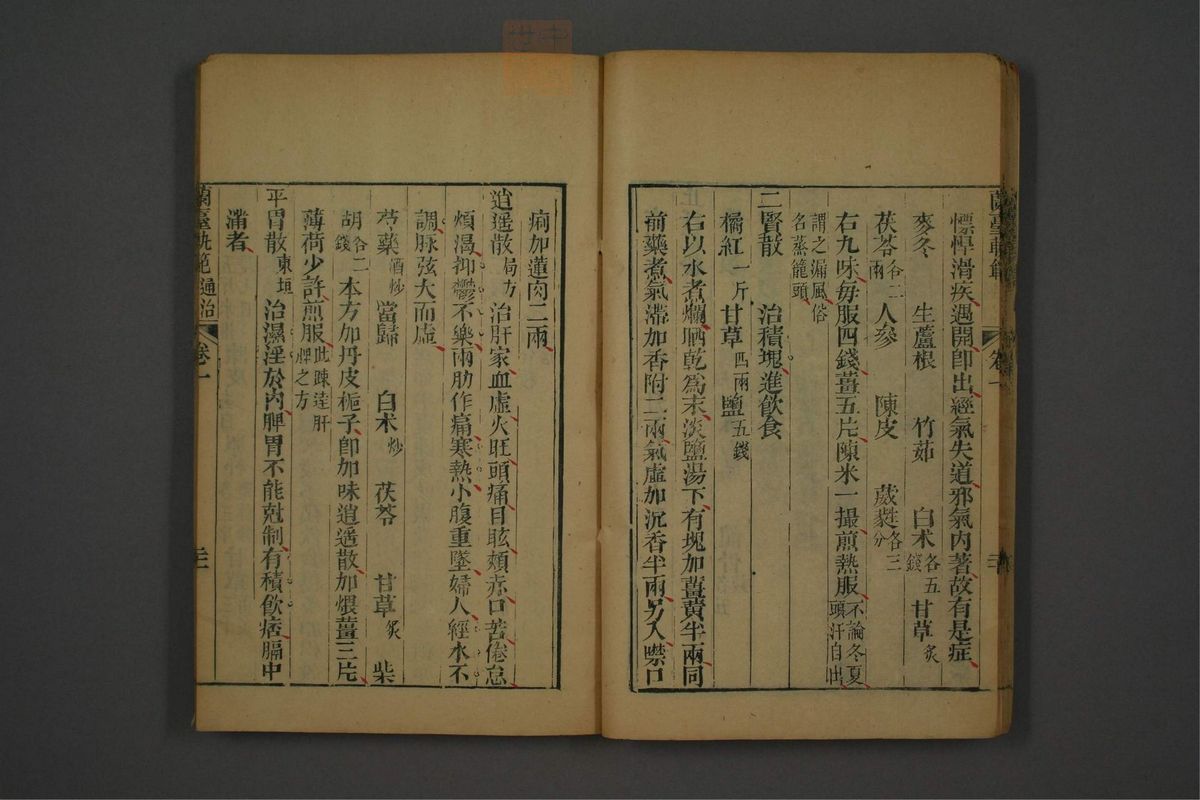 慓悍滑疾遇開即出經氣失道邪氣內著故有是症
麥冬 生蘆根 竹茹 白朮各五錢 甘草炙
茯苓各二兩 人參 陳皮 葳蕤各三分
右九味每服四錢薑五片陳米一撮煎熱服不論冬夏頭汗自出
謂之漏風俗名蒸籠頭
二賢散 治積塊進飲食
橘紅一斤 甘草四兩 鹽五錢
右以水煮爛晒乾為末淡鹽湯下有塊加薑黃半兩同
前藥煮氣滯加香附二兩氣虛加沉香半兩另入噤口
痢加蓮肉二兩
逍遥散局方 治肝家血虛火旺頭痛目眩頰赤口苦倦怠
煩渴抑鬱不樂兩肋作痛寒熱小腹重墜婦人經水不
調脉弦大而虛
芍藥酒炒 當歸 白朮炒 茯苓 甘草炙 柴
胡各二錢 本方加丹皮梔子即加味逍遥散加煨薑三片
薄荷少許煎服此疎逹肝脾之方
平胃散東垣 治濕淫於內脾胃不能尅制有積飲痞膈中
滿者
蘭臺軌範通治 卷一